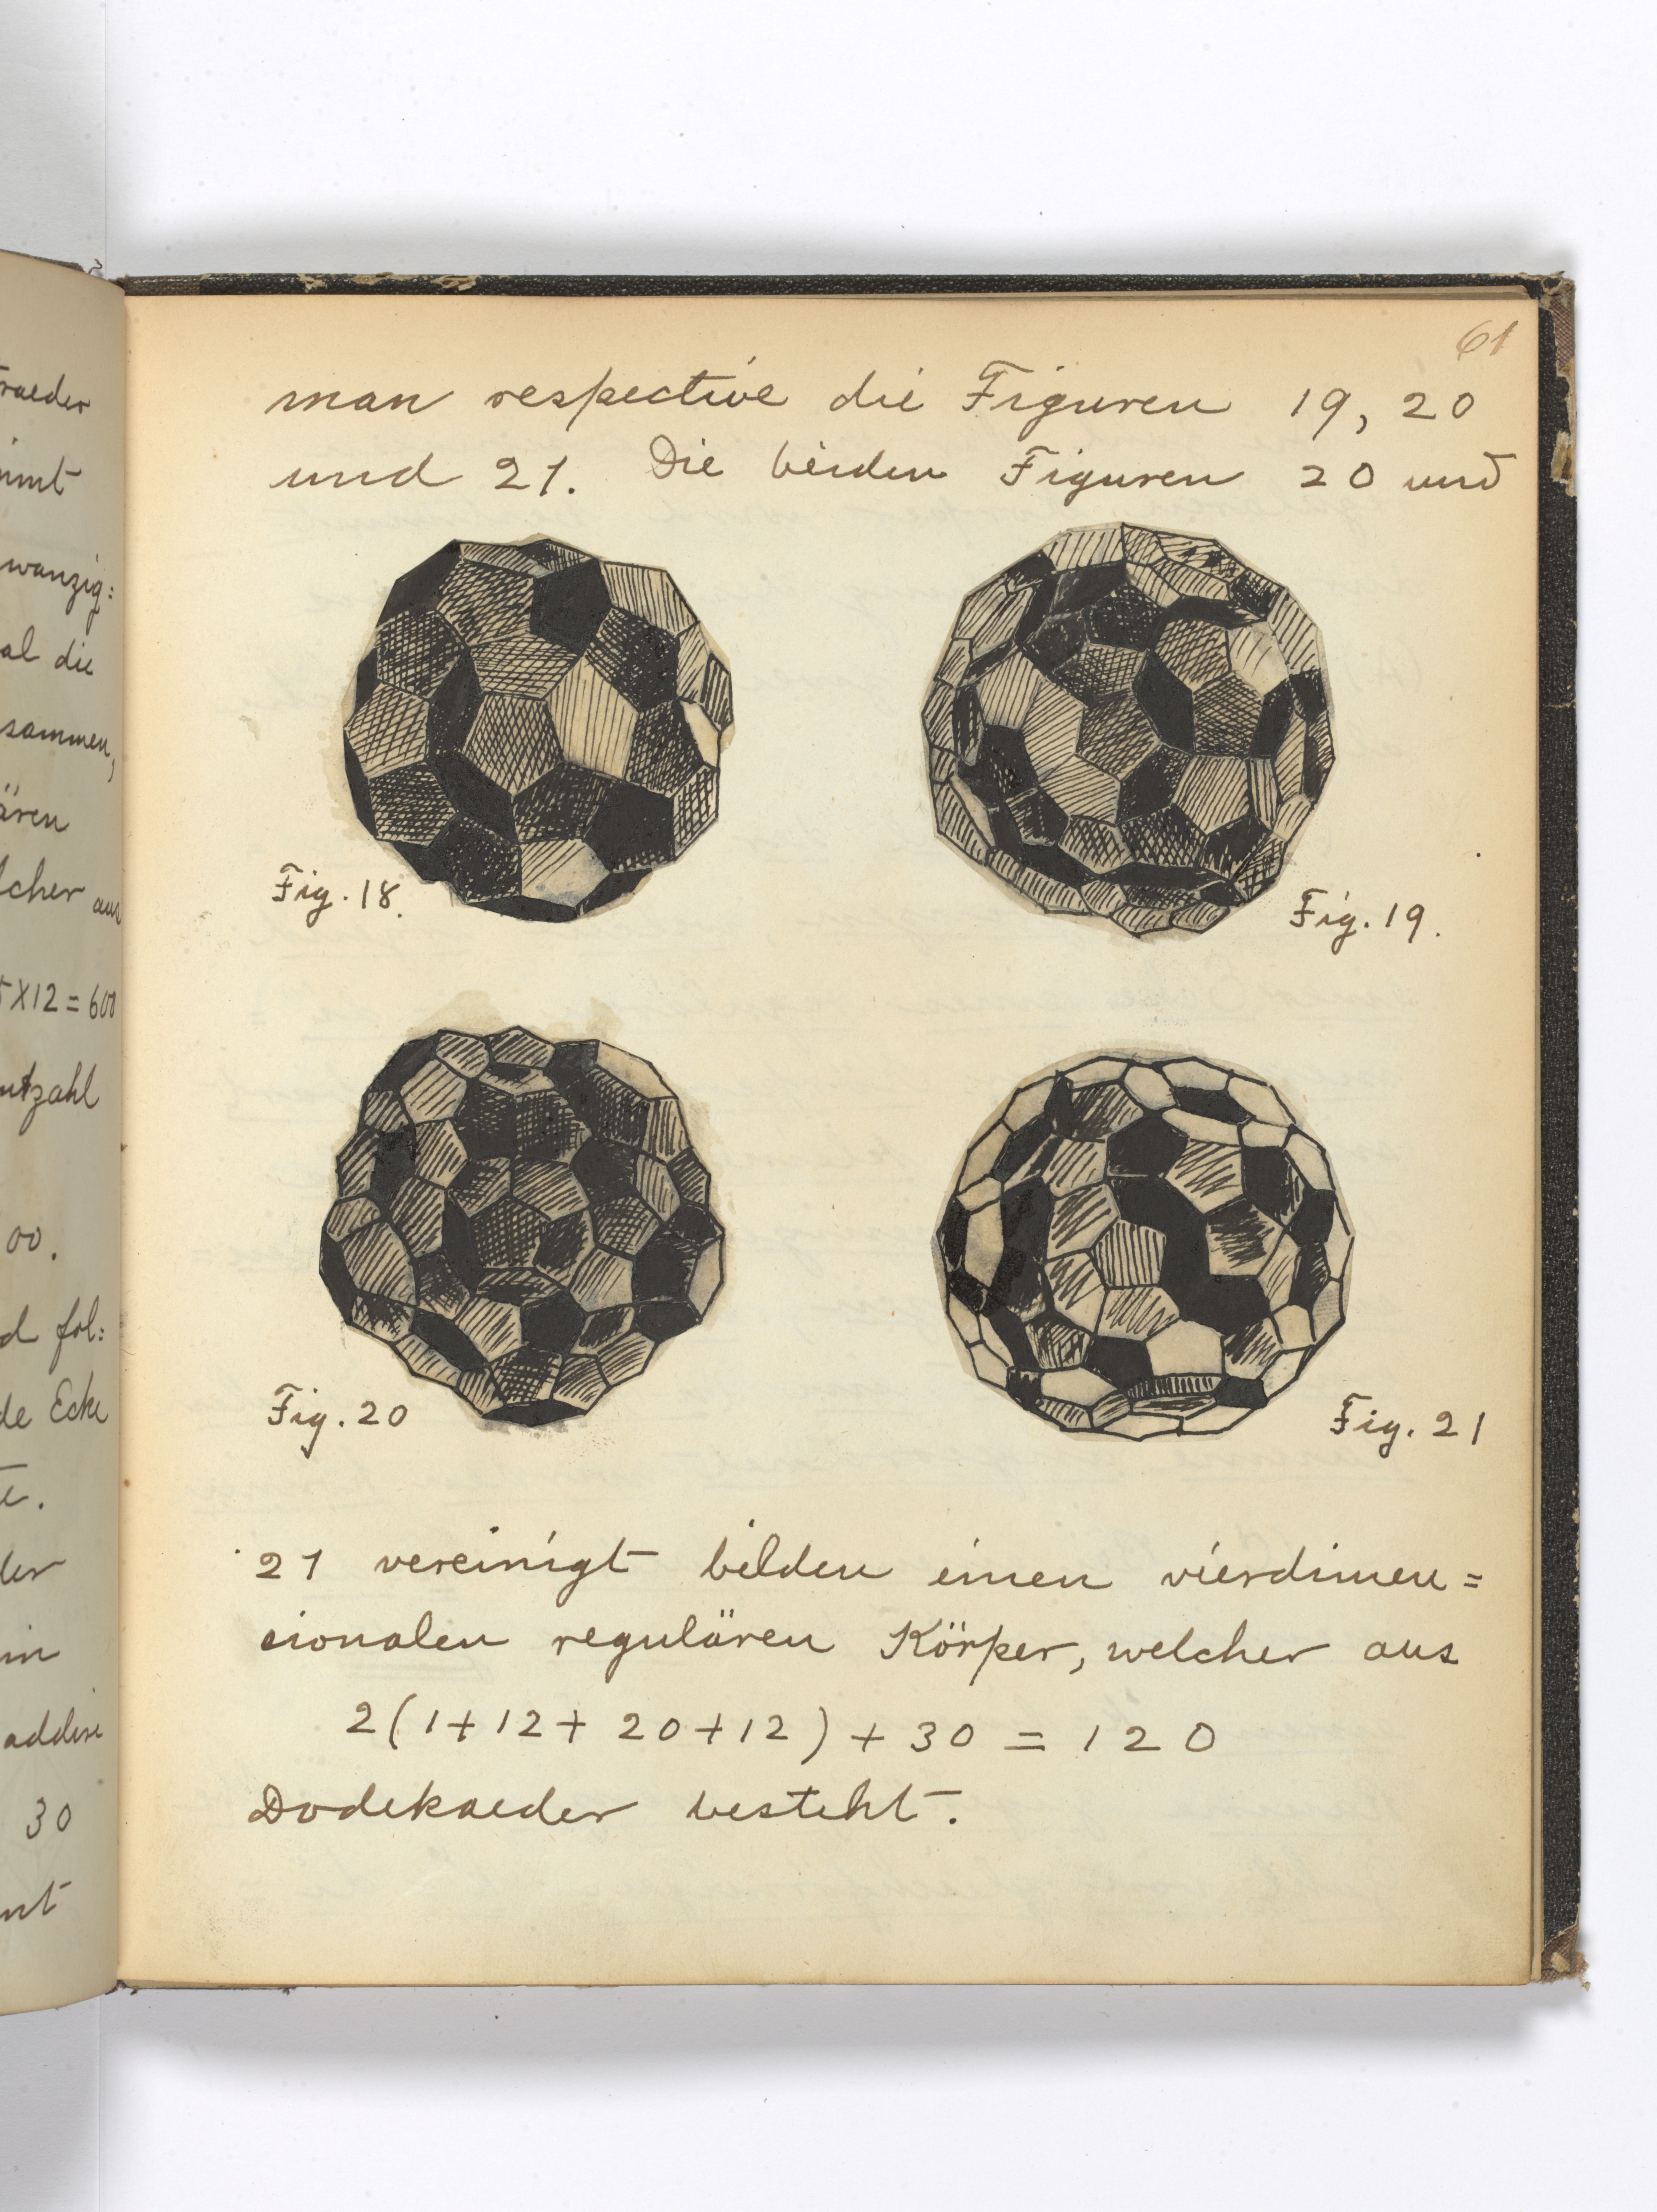 raeder
immt
wanzig=
al die
sammen,
ären
lcher aus
5×12=600
00.
d fol=
de Ecke
te.
der
in
addire
30
nt
61
man respective die Figuren 19, 20
und 21. Die beiden Figuren 20 und
Fig. 18.
Fig. 19.
Fig. 20
Fig. 21
21 vereinigt bilden einen vierdimen=
sionalen regulären Körper, welcher aus
2(1+12+20+12)+30=120
Dodekaeder besteht.